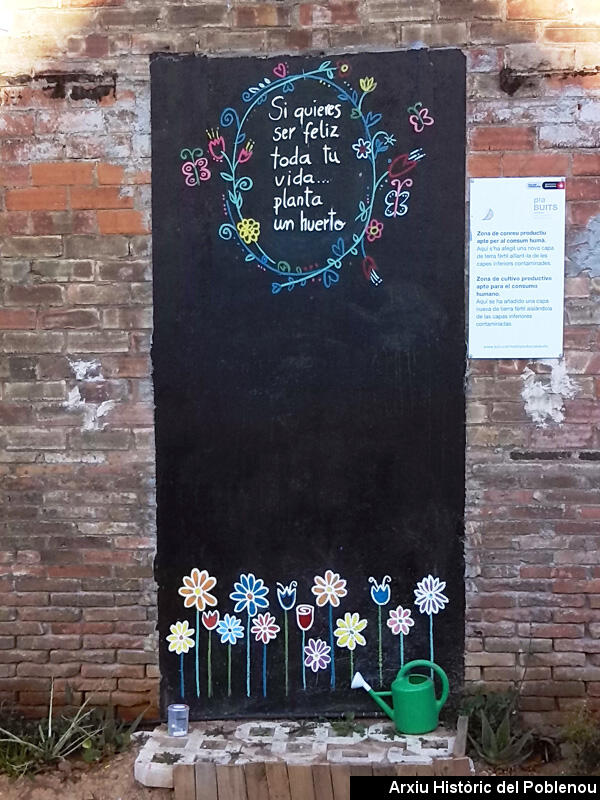 Si quieres
ser feliz
toda tu
vida...
planta
un huerto
pla
BUITS
Zona de conreu productiu
apte per al consum humà.
Aquí s'ha afegit una nova capa
de terra fèrtil aïllant-la de les
capes inferiors contaminades.
Zona de cultivo productivo
apto para el consumo
humano.
Aquí se ha añadido una capa
nueva de tierra fértil aislándola
de las capas inferiores
contaminadas.
Arxiu Històric del Poblenou